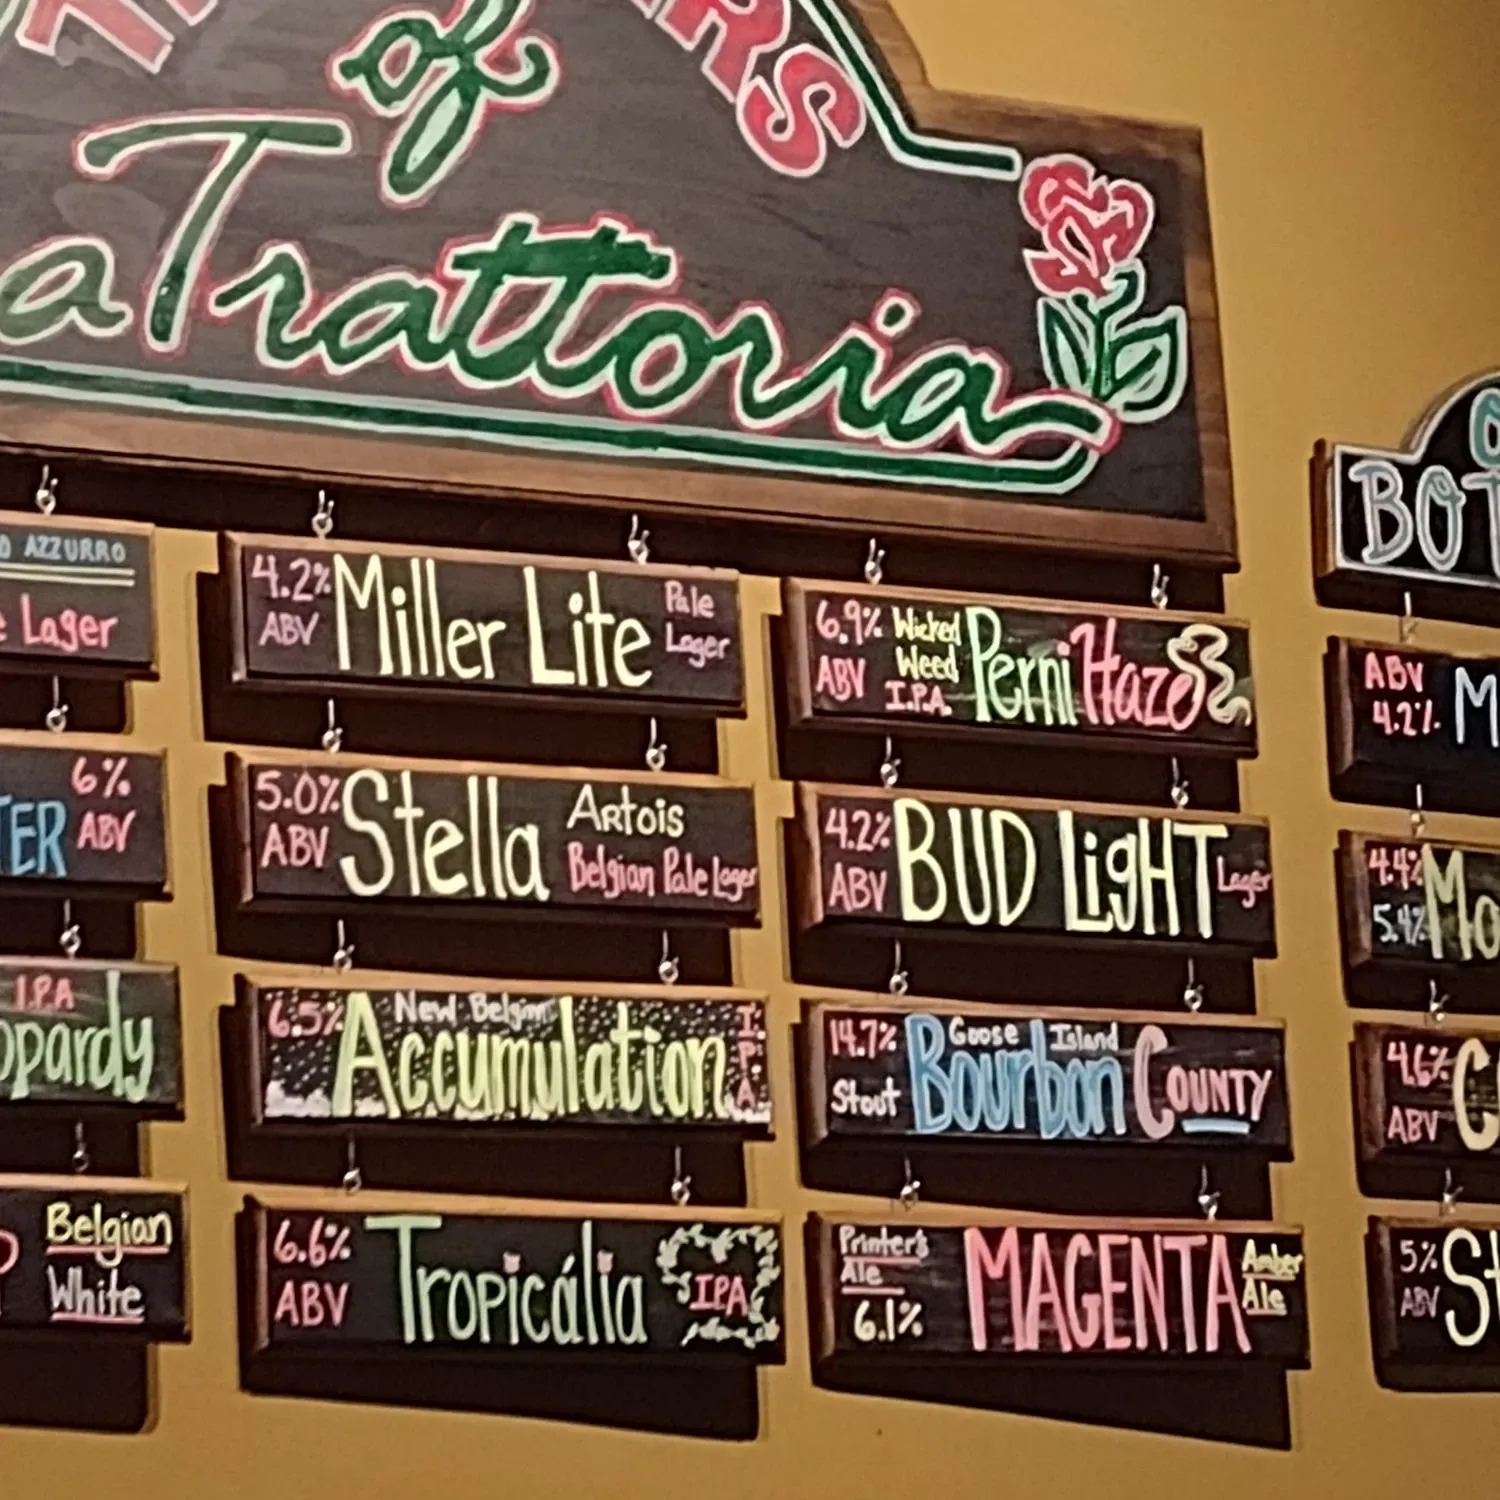 of
a Trattoria
D AZZURRO
Lager
6%
TER ABV
I.P.A
opardy
Belgian
White
4.2% Miller Lite Pale
ABV Lager
5.0% Stella Artois
ABV Belgian Pale Lager
6.5% New Belgium I.P.A.
Accumulation
6.6% Tropicália IPA
ABV
6.9% Wicked Perni Haze
ABV Weed
I.P.A.
4.2% BUD LigHT Lager
ABV
14.7% Goose Island
Stout Bourbon County
Printer's MAGENTA Amber
Ale Ale
6.1%
BOT
ABV M
4.2%
4.4% Mo
5.4%
4.6% C
ABV
5% St
ABV